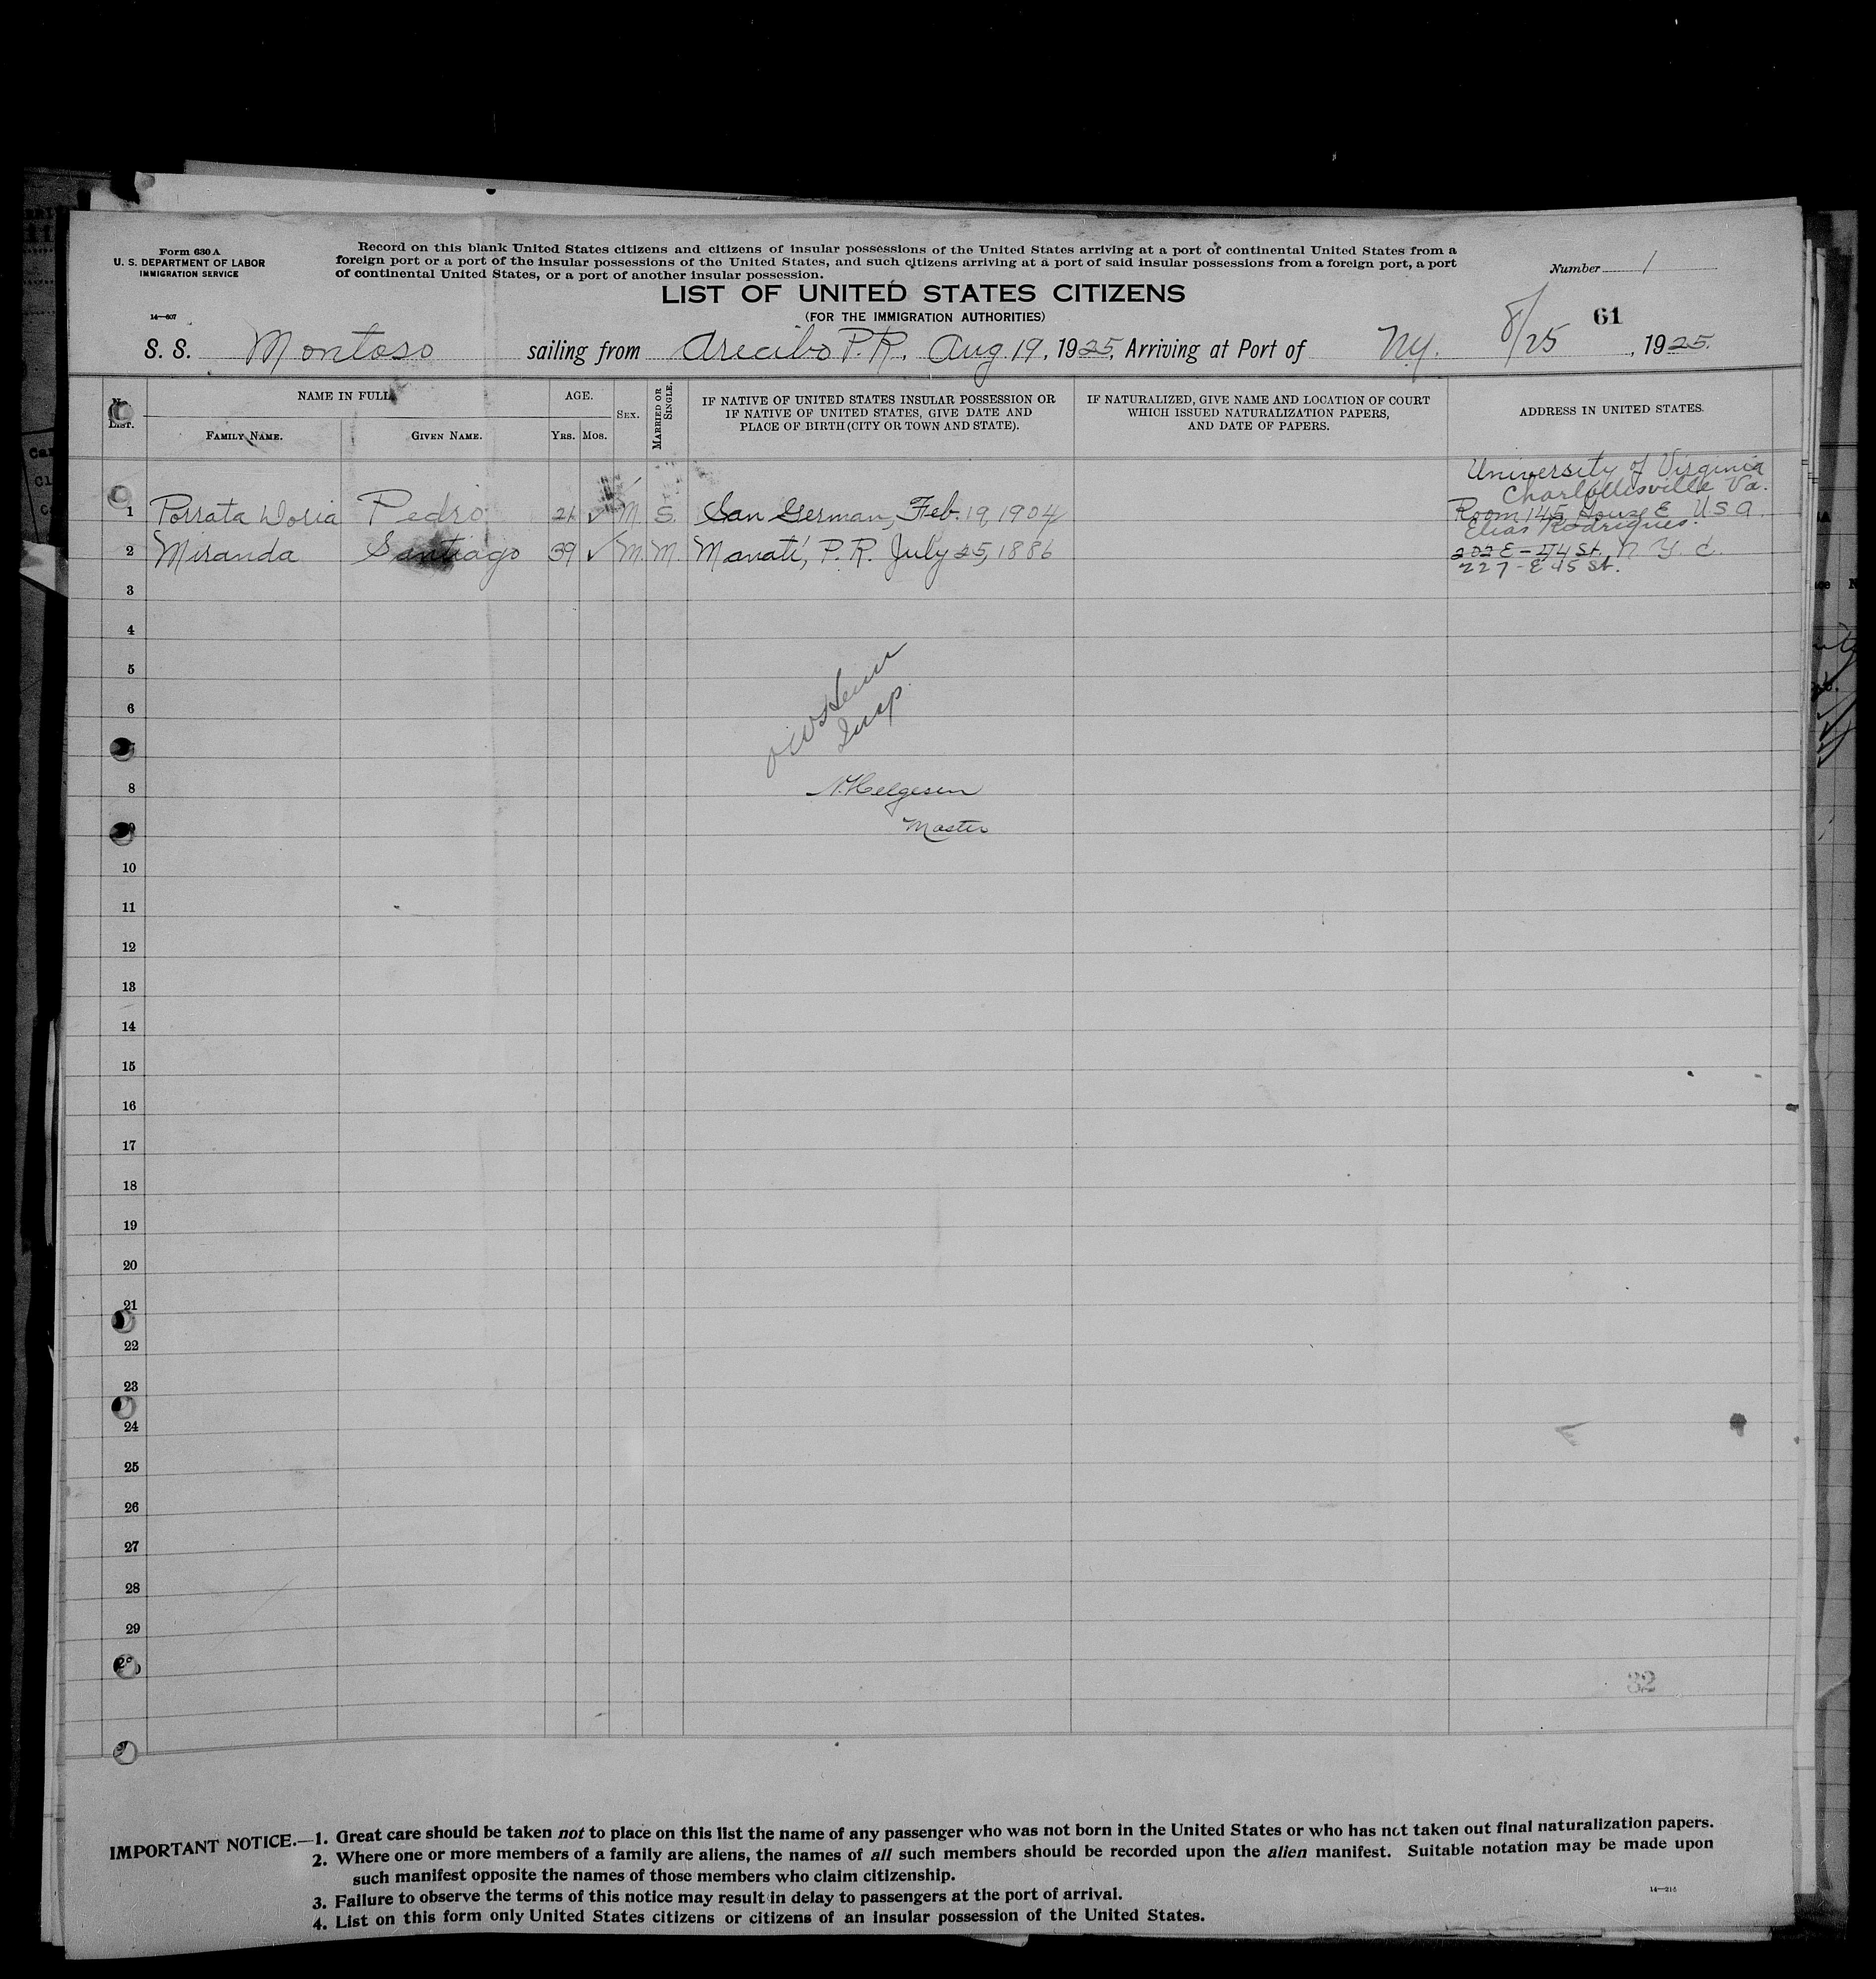 Form 630 A
U. S. DEPARTMENT OF LABOR
IMMIGRATION SERVICE
14—607
Record on this blank United States citizens and citizens of insular possessions of the United States arriving at a port of continental United States from a
foreign port or a port of the insular possessions of the United States, and such citizens arriving at a port of said insular possessions from a foreign port, a port
of continental United States, or a port of another insular possession.
Number 1
LIST OF UNITED STATES CITIZENS
(FOR THE IMMIGRATION AUTHORITIES)
61
S. S. Montoso sailing from Arecibo P.R. Aug 19, 1925, Arriving at Port of N.Y. 8/25, 1925.
No. LIST.
NAME IN FULL
FAMILY NAME.
GIVEN NAME.
AGE.
YRS. MOS.
SEX.
MARRIED OR SINGLE.
IF NATIVE OF UNITED STATES INSULAR POSSESSION OR
IF NATIVE OF UNITED STATES, GIVE DATE AND
PLACE OF BIRTH (CITY OR TOWN AND STATE).
IF NATURALIZED, GIVE NAME AND LOCATION OF COURT
WHICH ISSUED NATURALIZATION PAPERS,
AND DATE OF PAPERS.
ADDRESS IN UNITED STATES.
University of Virginia
Charlottesville Va.
1 Porrata Doria Pedro 21 ✓ M. S. San German, Feb. 19, 1904 Room 145 House E U.S.A.
Elias Rodrigues.
2 Miranda Santiago 39 ✓ M. M. Manatí, P. R. July 25, 1886 202 E - 74 St. N. Y. C.
227 - E 45 St.
3
4
5
6
Insp.
8
N. Helgesen
Master
9
10
11
12
13
14
15
16
17
18
19
20
21
22
23
24
25
26
27
28
29
32
IMPORTANT NOTICE.—1. Great care should be taken not to place on this list the name of any passenger who was not born in the United States or who has not taken out final naturalization papers.
2. Where one or more members of a family are aliens, the names of all such members should be recorded upon the alien manifest. Suitable notation may be made upon
such manifest opposite the names of those members who claim citizenship.
3. Failure to observe the terms of this notice may result in delay to passengers at the port of arrival.
4. List on this form only United States citizens or citizens of an insular possession of the United States.
14—215